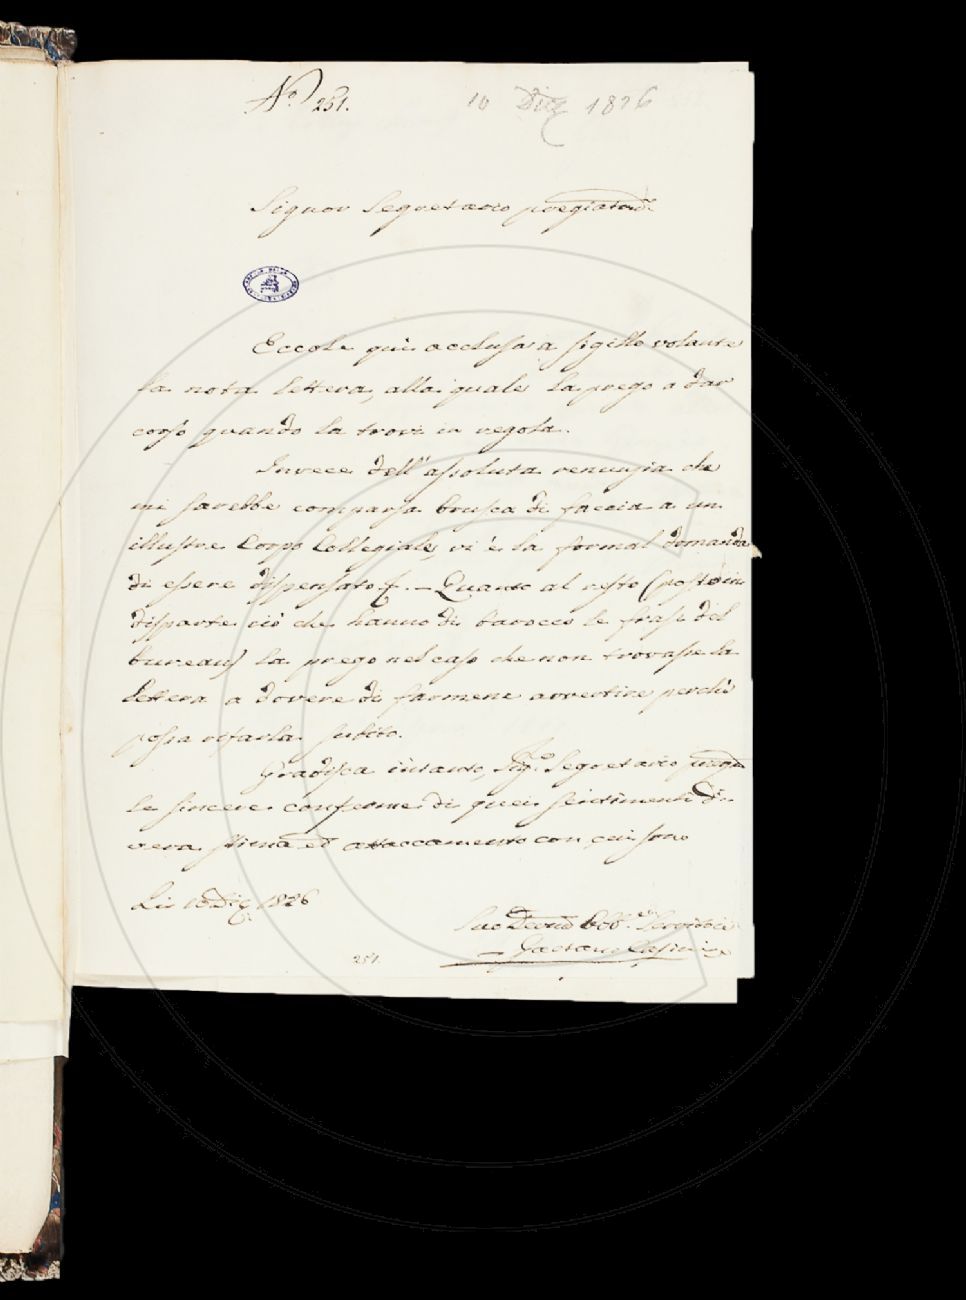 N.º 251.
10 Dic 1826
Signor Segretario pregiatmo
Eccole quì acclusa a sigillo volante
la nota lettera, alla quale la prego a dar
corso quando la trovi in regola.
Invece dell'assoluta renunzia che
mi sarebbe comparsa brusca di faccia a un
illustre Corpo Collegiale, vi è la formal domanda
di essere dispensato. — Quanto al resto (posto in
disparte ciò che hanno di barocco le frasi del
bureau) la prego nel caso che non trovasse la
lettera a dovere di farmene avvertire perchè
possa rifarla subito.
Gradisca intanto, Sig.º Segretario preg.mo
le sincere conferme di quei sentimenti di
vera stima ed attaccamento con cui sono
Lì 10 Dic. 1826
Suo Devmo Obb. Servitore
Gaetano
251.